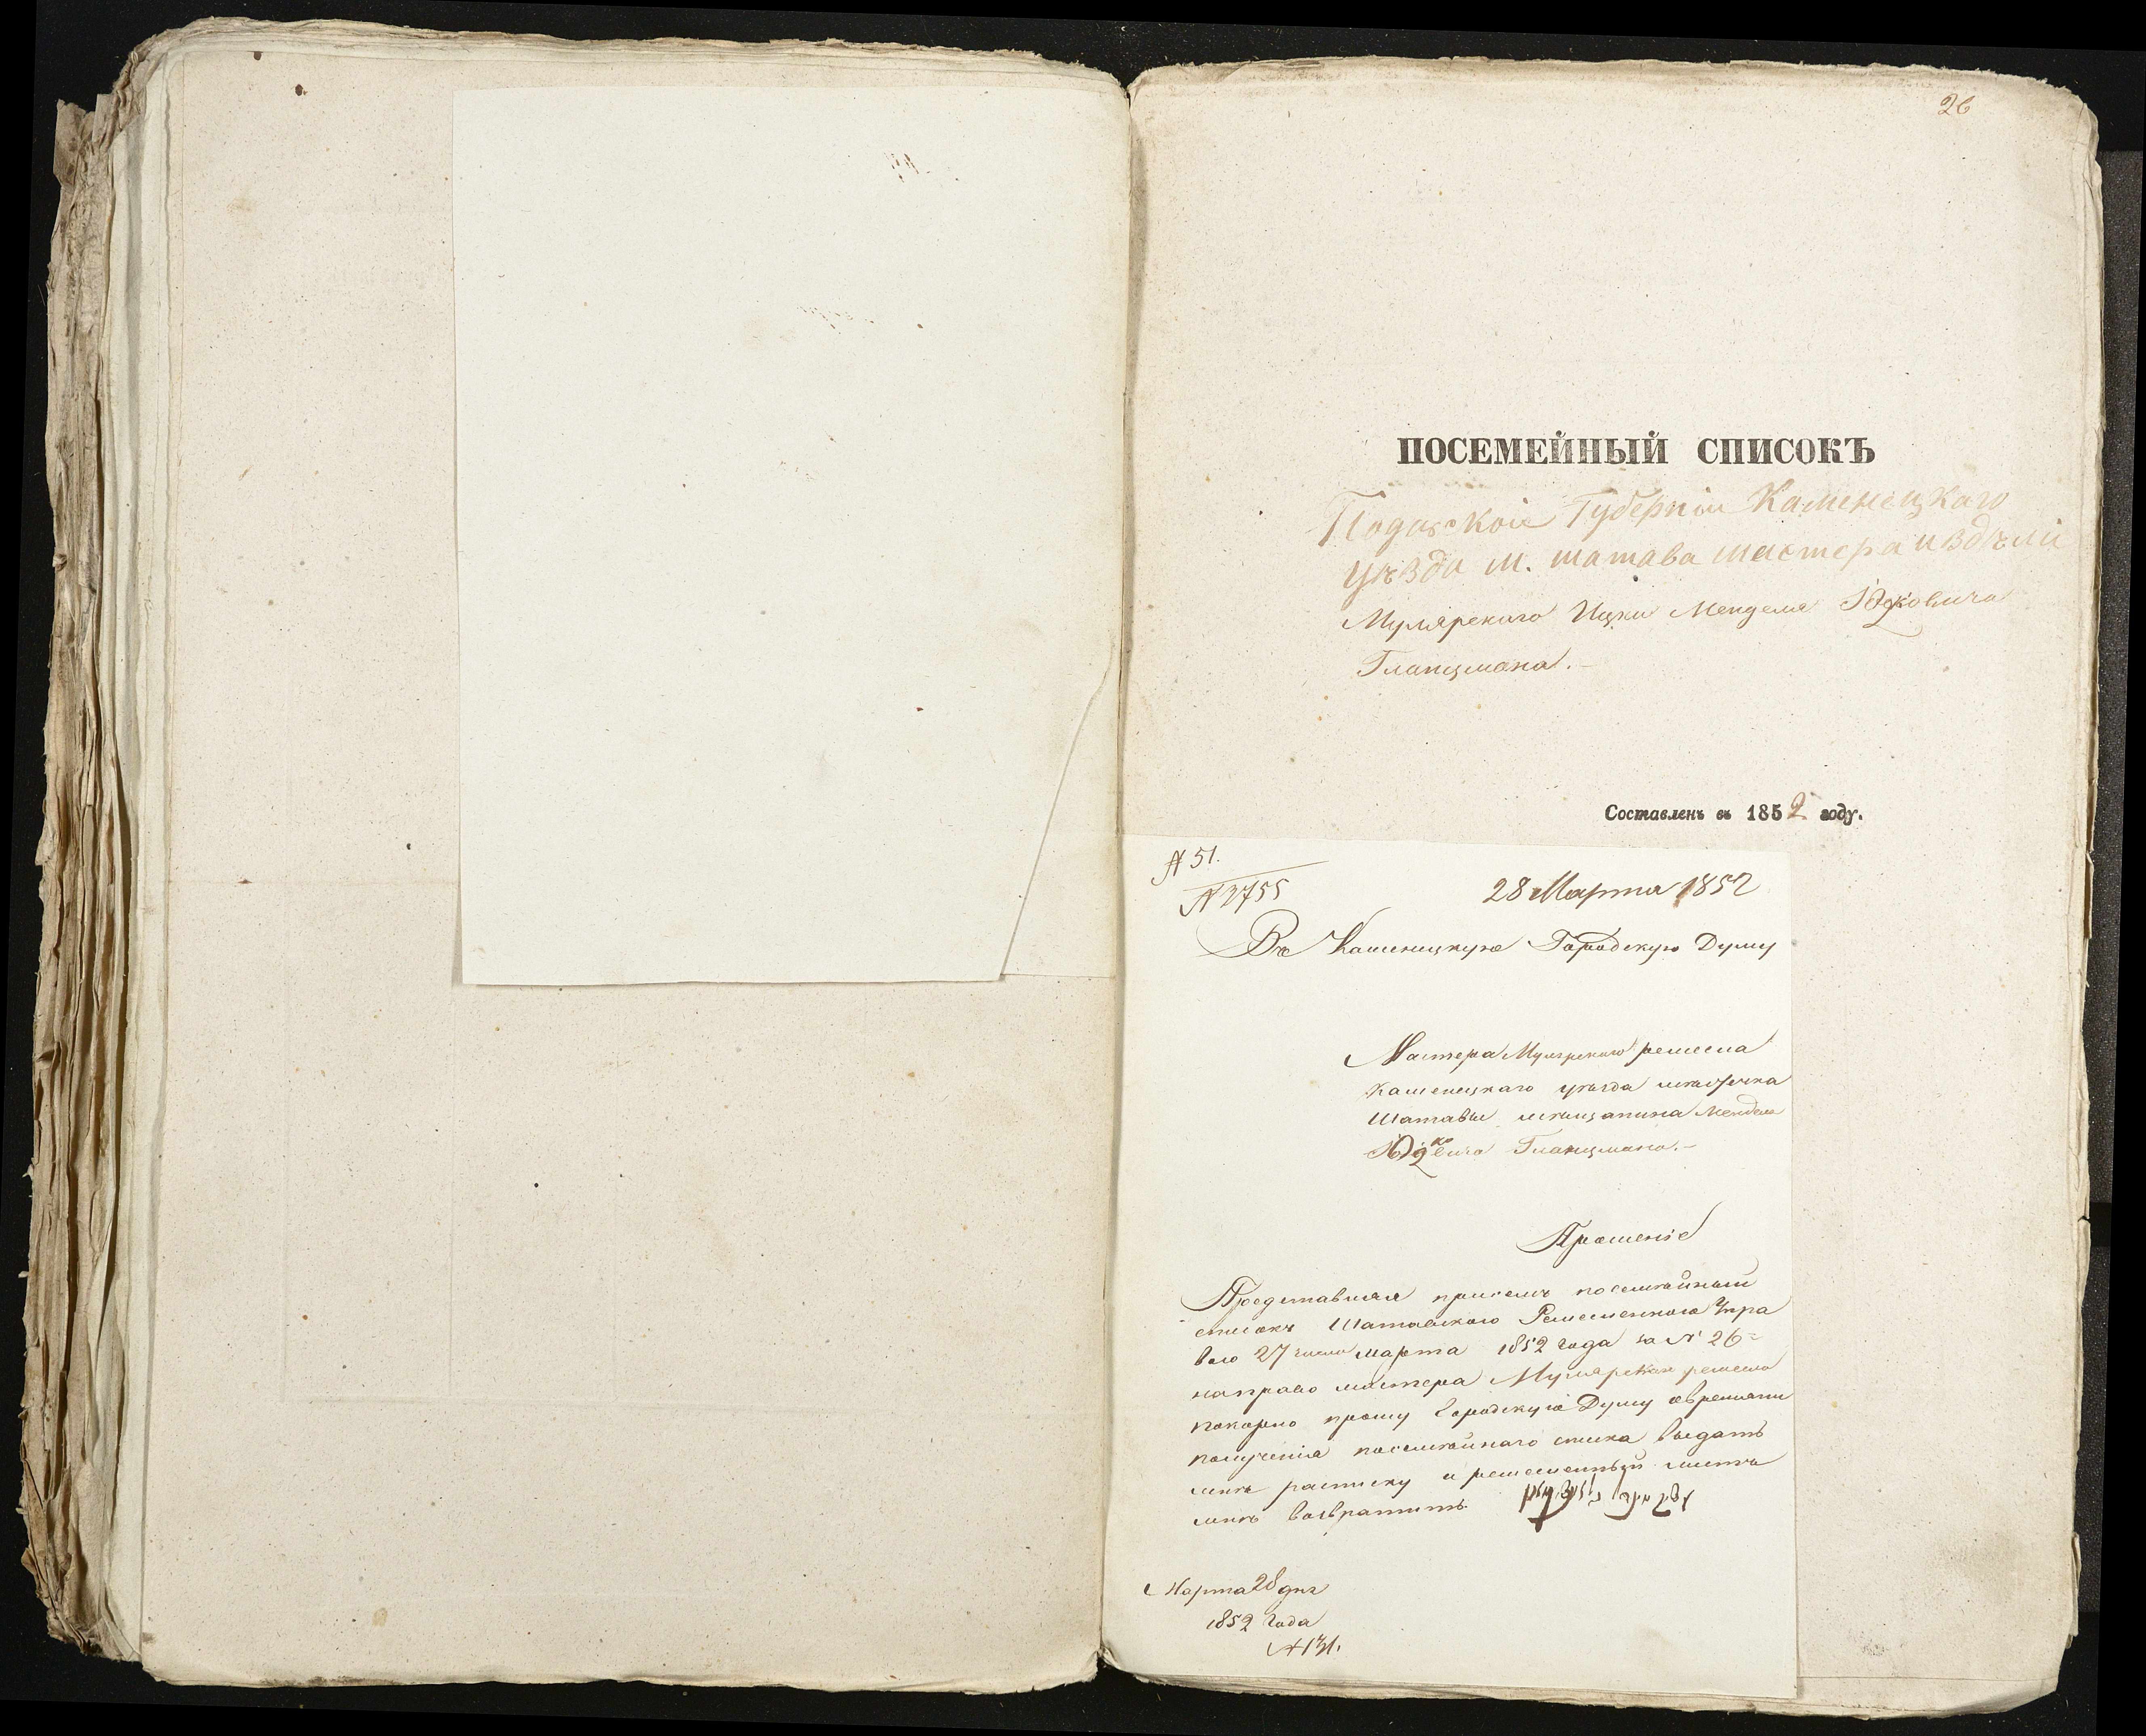 26
ПОСЕМЕЙНЫЙ СПИСОКЪ
Подольскои Губерніи Каменецкаго
уѣзда м. шатава мастера издѣлій
Мулярскаго Ицки Менделя Юдковича
Гланцмана.-
Составленъ въ 1852 году.
№ 51.
№ 2755
28 Марта 1852
Въ Каменецкую Городскую Думу
Мастера Мулярскаго ремесла
Каменецкаго уѣзда мѣстечка
Шатавы мѣщанина Менделя
Юдковича Гланцмана.-
Прошеніе
Представляя присемъ посемѣйный
списокъ Шатавского Ремесленного Упра
вою 27 числа марта 1852 года за № 26
направо мастера Мулярскаго ремесла
покорно прошу Городскую Думу овремени
полученія посемѣйнаго списка выдать
мнѣ расписку и ремесленный листъ
мнѣ возвратить
Марта 28 дня
1852 года
№ 131.